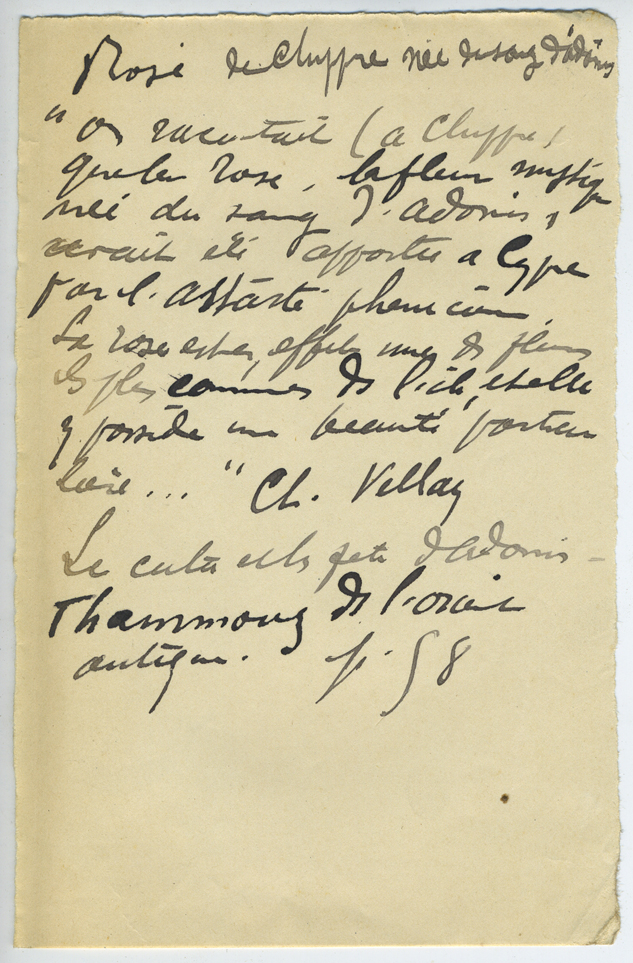 Rose de Chyppre née du sang d'adonis
"on racontait (a Chyppre)
que la rose, la fleur mystique
née du sang d'adonis,
avait été apportée a Cypre
par l'Astarté phenicienne.
La rose est en effet une des fleurs
les plus connues de l'ile, et elle
y possède une beauté particu
lière... " Ch. Vellay
Le culte et les fetes d'adonis -
Thammouz de l'orient
antique. p. 58